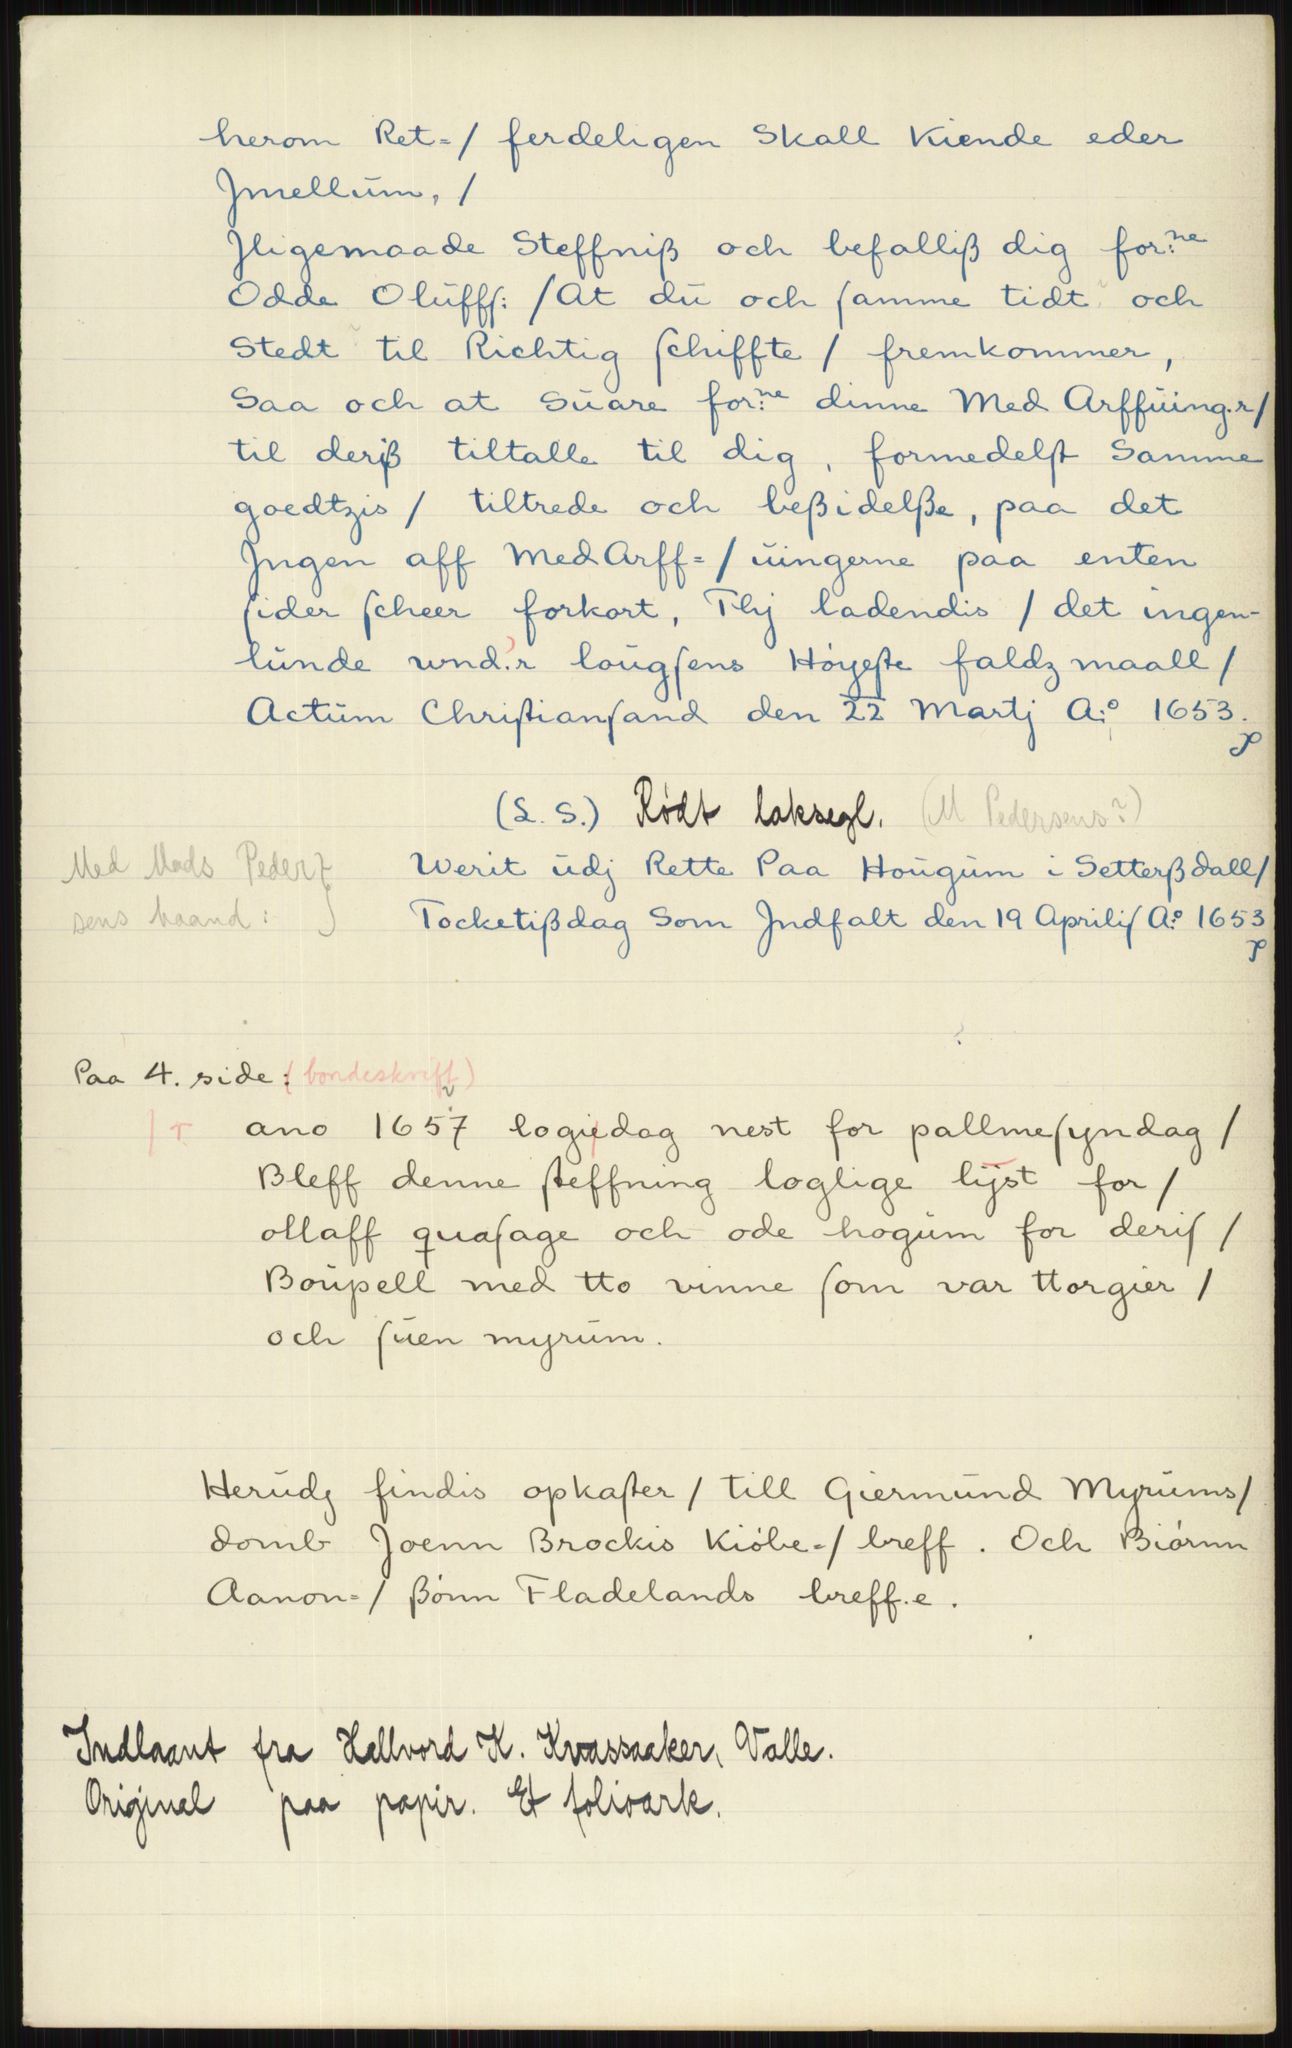 herom Ret=/ ferdeligen Skall Kiende eder
Jmellŭm, /
Jligemaade Steffniß och befalliß dig for:ne
Odde Olŭffſ: /At dŭ och ſamme tidt och
Stedt til Richtig ſchiffte / fremkommer,
Saa och at Sŭare for:ne dinne Med Arffŭing.r/
til deriß tiltalle til dig, formedelſt Samme
goedtzis / tiltrede och beßidelße, paa det
Jngen aff MedArff=/ ŭingerne paa enten
ſider ſcheer forkort, Thj ladendis / det ingen-
lŭnde wnd.r loŭgſens Höyeſte faldz maall /
Actŭm Chriſtianſand den 22 Martj A:o 1653.
(L. S.) Rødt laksegl. (M Pedersens?)
Med Mads Peder-
sens haand:
Werit ŭdj Rette Paa Hoŭgŭm i Setterßdall/
Tocketißdag Som Jndfalt den 19 Apriliſ A:o 1653
Paa 4. side: (bondeskrift)
ano 1657 logiedag nest for pallmeſyndag /
Bleff denne ſteffning loglige lijst for /
ollaff quaſage och ode hogŭm for deriſ /
Boŭpell med tto vinne ſom var ttorgier /
och ſŭen myrŭm.
Herŭdj findis opkaſter / till Giermŭnd Myrŭms/
domb Joenn Brockis Kiöbe=/ breff. Och Biörnn
Aanon=/ ßönn Fladelands breff.e.
Indlaant fra Hallvord K. Kvassaaker, Valle.
Original paa papir. Et folioark.